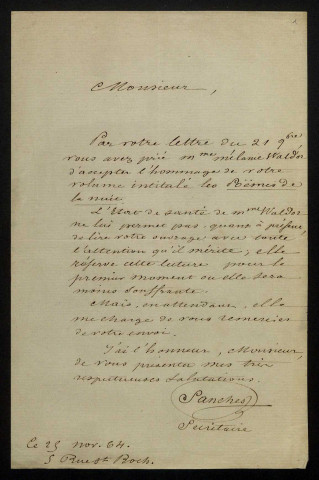 Monsieur,
Par votre lettre du 21 9bre
vous avez prié mme mélanie Waldor
d'accepter l'hommage de votre
volume intitulé les Poëmes de
la nuit.
L'Etat de santé de mme Waldor
ne lui permet pas, quant à présent,
de lire votre ouvrage avec toute
l'attention qu'il mérite; elle
réserve cette lecture pour le
premier moment où elle sera
moins souffrante.
Mais, en attendant, elle
me charge de vous remercier
de votre envoi.
J'ai l'honneur, Monsieur,
de vous présenter mes très
respectueuses salutations.
Sanches
Secrétaire
Ce 25 nov. 64.
5 Rue St Roch.